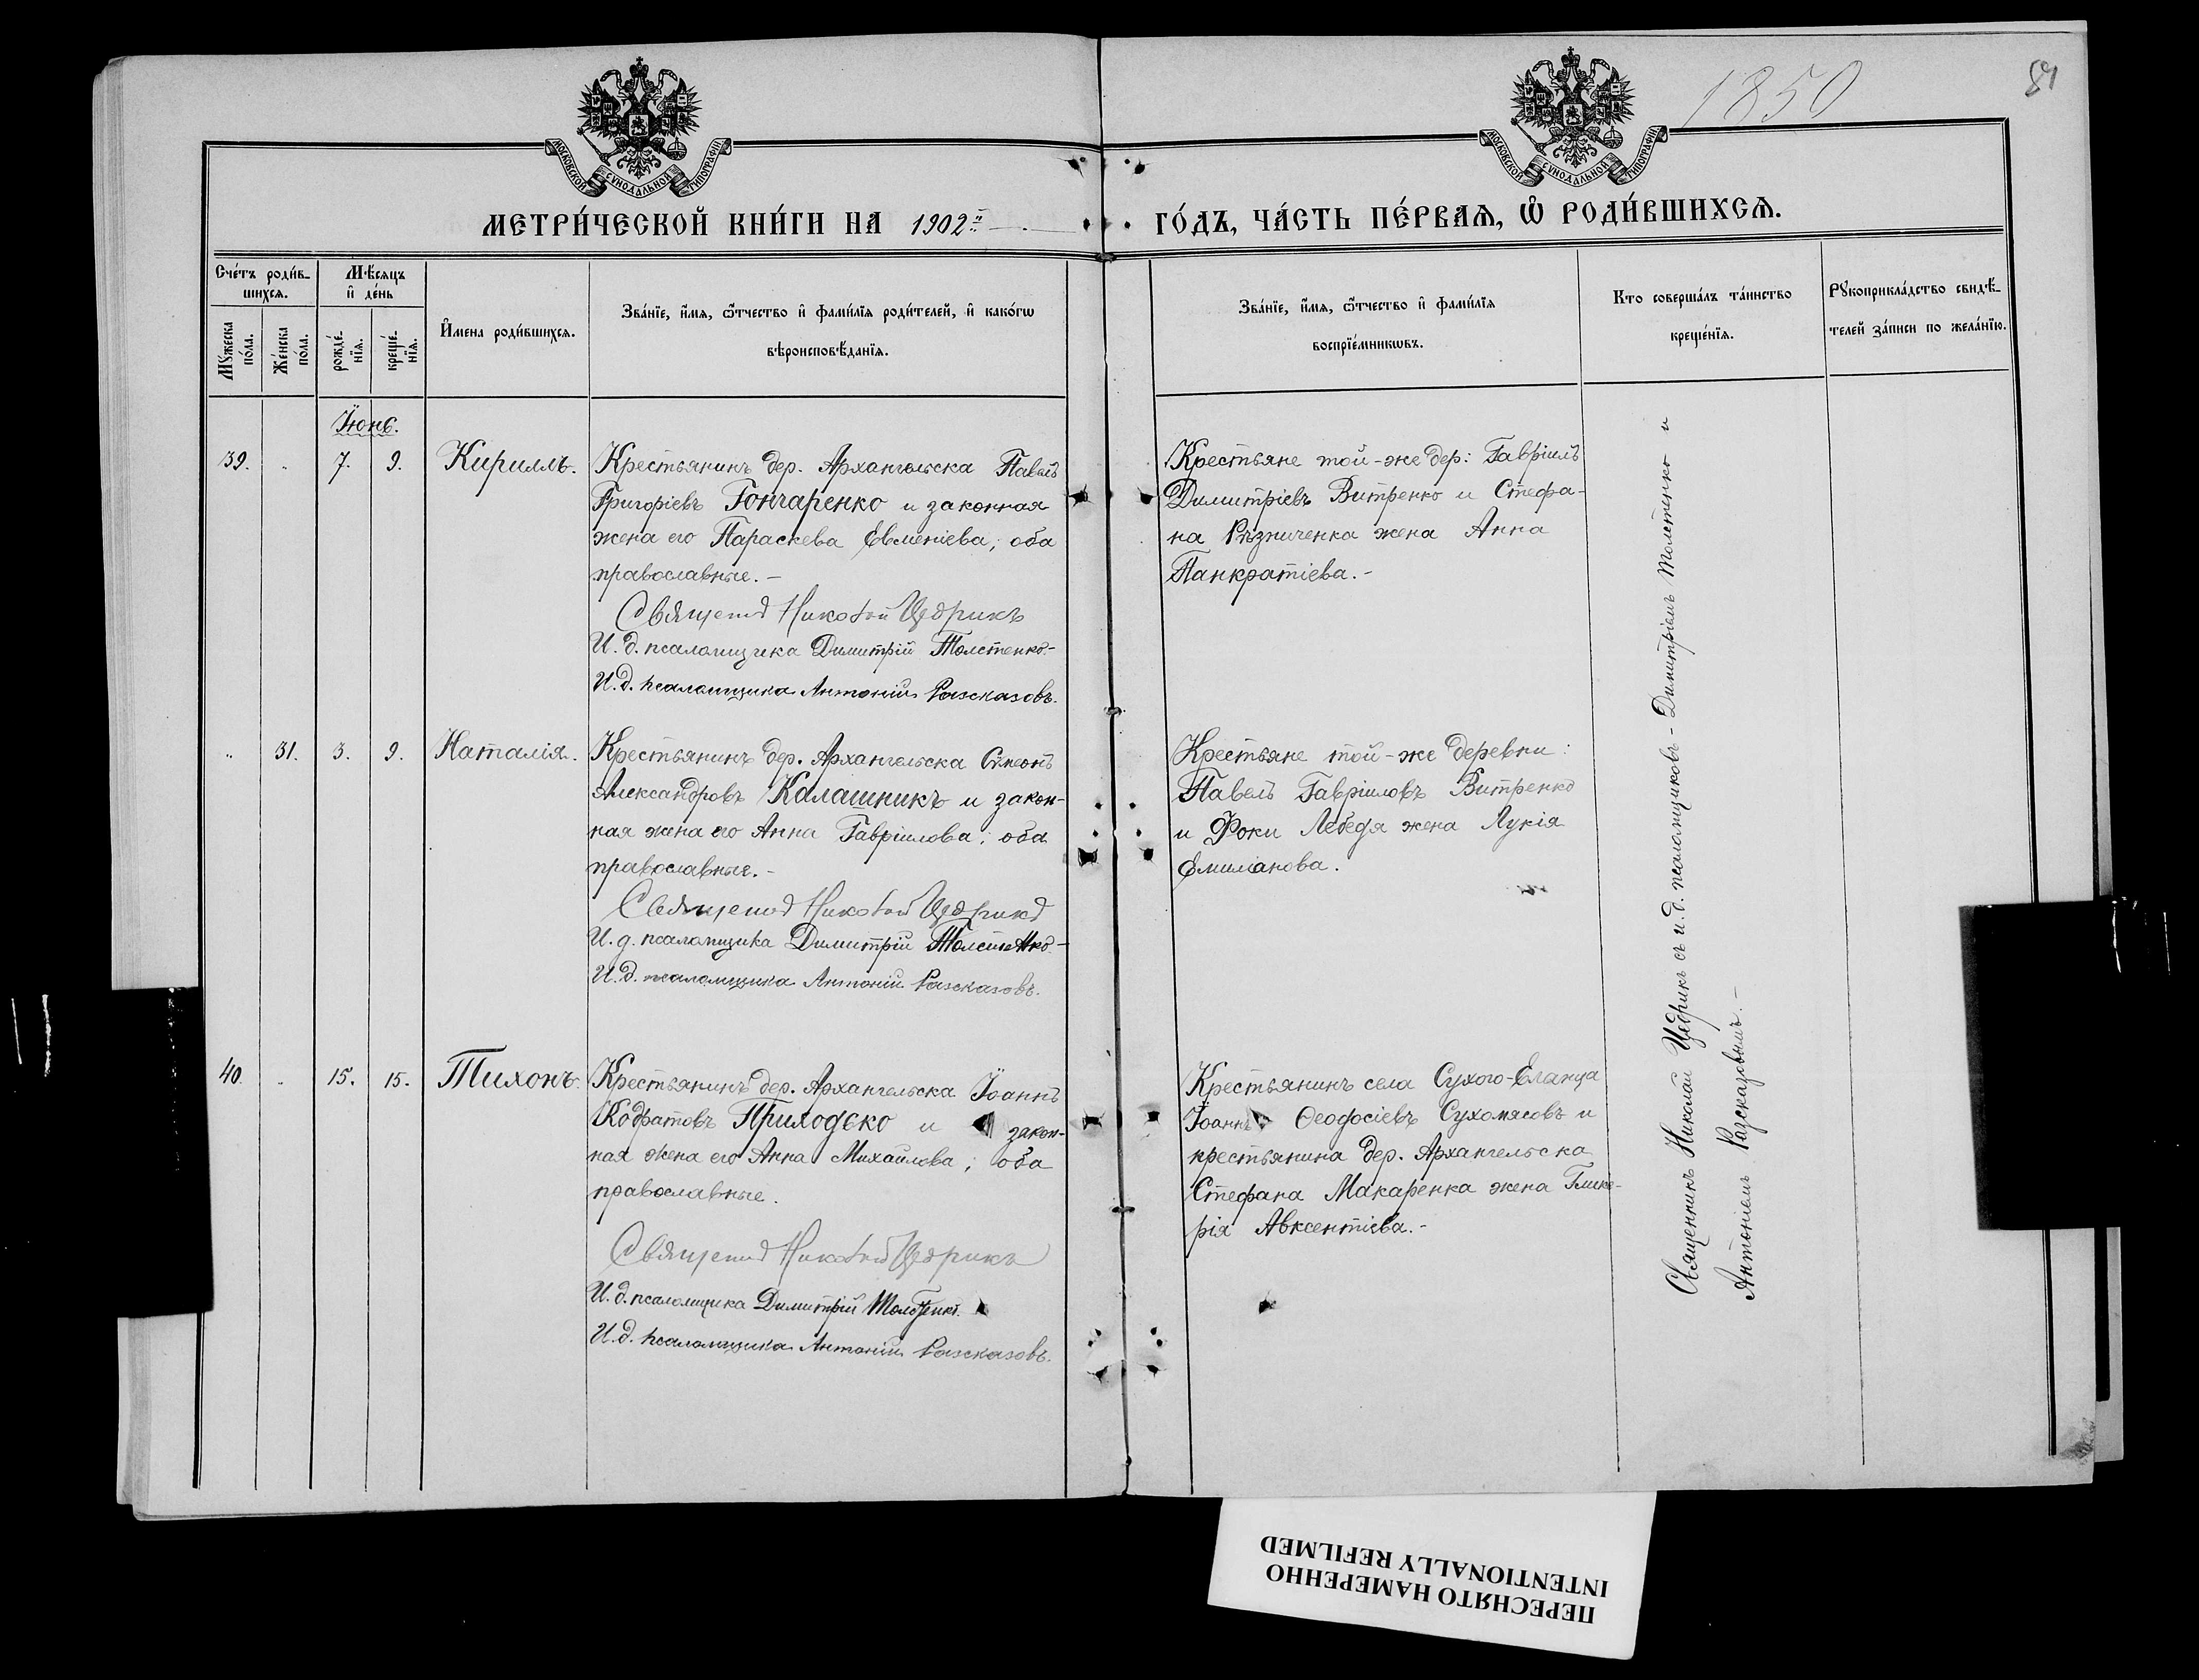 1850
81
МОСКОВСКОЙ СѴНОДАЛЬНОЙ ТИПОГРАФІИ
МОСКОВСКОЙ СѴНОДАЛЬНОЙ ТИПОГРАФІИ
МЕТРИ́ЧЕСКОЙ КНИ́ГИ НА 1902й
ГО́ДЪ, ЧА́СТЬ ПЕ́РВАѦ, Ѡ РОДИ́ВШИХСѦ.
Сче́тъ роди́в-
шихсѧ.
Мꙋ́жеска по́ла.
Же́нска по́ла.
Мѣ́сяцъ
и҆ де́нь
рожде́-
нїѧ.
креще́-
нїѧ.
И҆мена роди́вшихсѧ.
Зва́нїе, и҆́мѧ, ѻ҆́тчество и҆ фами́лїѧ роди́телей, и҆ како́гѡ
вѣроисповѣ́данїѧ.
Зва́нїе, и҆́мѧ, ѻ҆́тчество и҆ фами́лїѧ
воспрїе́мникѡвъ.
Кто соверша́лъ та́инство
креще́нїѧ.
Рꙋкоприкла́дство свидѣ́-
телей за́писи по жела́нїю.
Іюнь.
39. " 7. 9. Кириллъ.
Крестьянинъ дер. Архангельска Павелъ
Григоріевъ Гончаренко и законная
жена его Параскева Евменіева; оба
православные.-
Священникъ Николай Цедрикъ
И. д. псаломщика Димитрій Толстенко.-
И. д. псаломщика Антоній Разсказовъ.
Крестьяне той-же дер: Гавріилъ
Димитріевъ Витренко и Стефа-
на Рѣзниченка жена Анна
Панкратіева.-
" 31. 3. 9. Наталія.
Крестьянинъ дер. Архангельска Симеонъ
Александровъ Калашникъ и закон-
ная жена его Анна Гавріилова; оба
православные.-
Священникъ Николай Цедрикъ
И. д. псаломщика Димитрій Толстенко-
И. д. псаломщика Антоній Разсказовъ.
Крестьяне той-же деревни:
Павелъ Гавріиловъ Витренко
и Фоки Лебедя жена Лукія
Емиліанова.
40. " 15. 15. Тихонъ.
Крестьянинъ дер. Архангельска Іоаннъ
Кодратовъ Приходько и закон-
ная жена его Анна Михаилова; оба
православные.
Священникъ Николай Цедрикъ
И. д. псаломщика Димитрій Толстенко.
И. д. псаломщика Антоній Разсказовъ.
Крестьянинъ села Сухого-Еланца
Іоаннъ Ѳеодосіевъ Сухомясовъ и
крестьянина дер. Архангельска
Стефана Макаренка жена Глике-
рія Авксентіева.-
Священникъ Николай Цедрикъ съ и. д. псаломщиковъ - Димитріемъ Толстенко и
Антоніемъ Разсказовымъ.-
ПЕРЕСНЯТО НАМЕРЕННО
INTENTIONALLY REFILMED